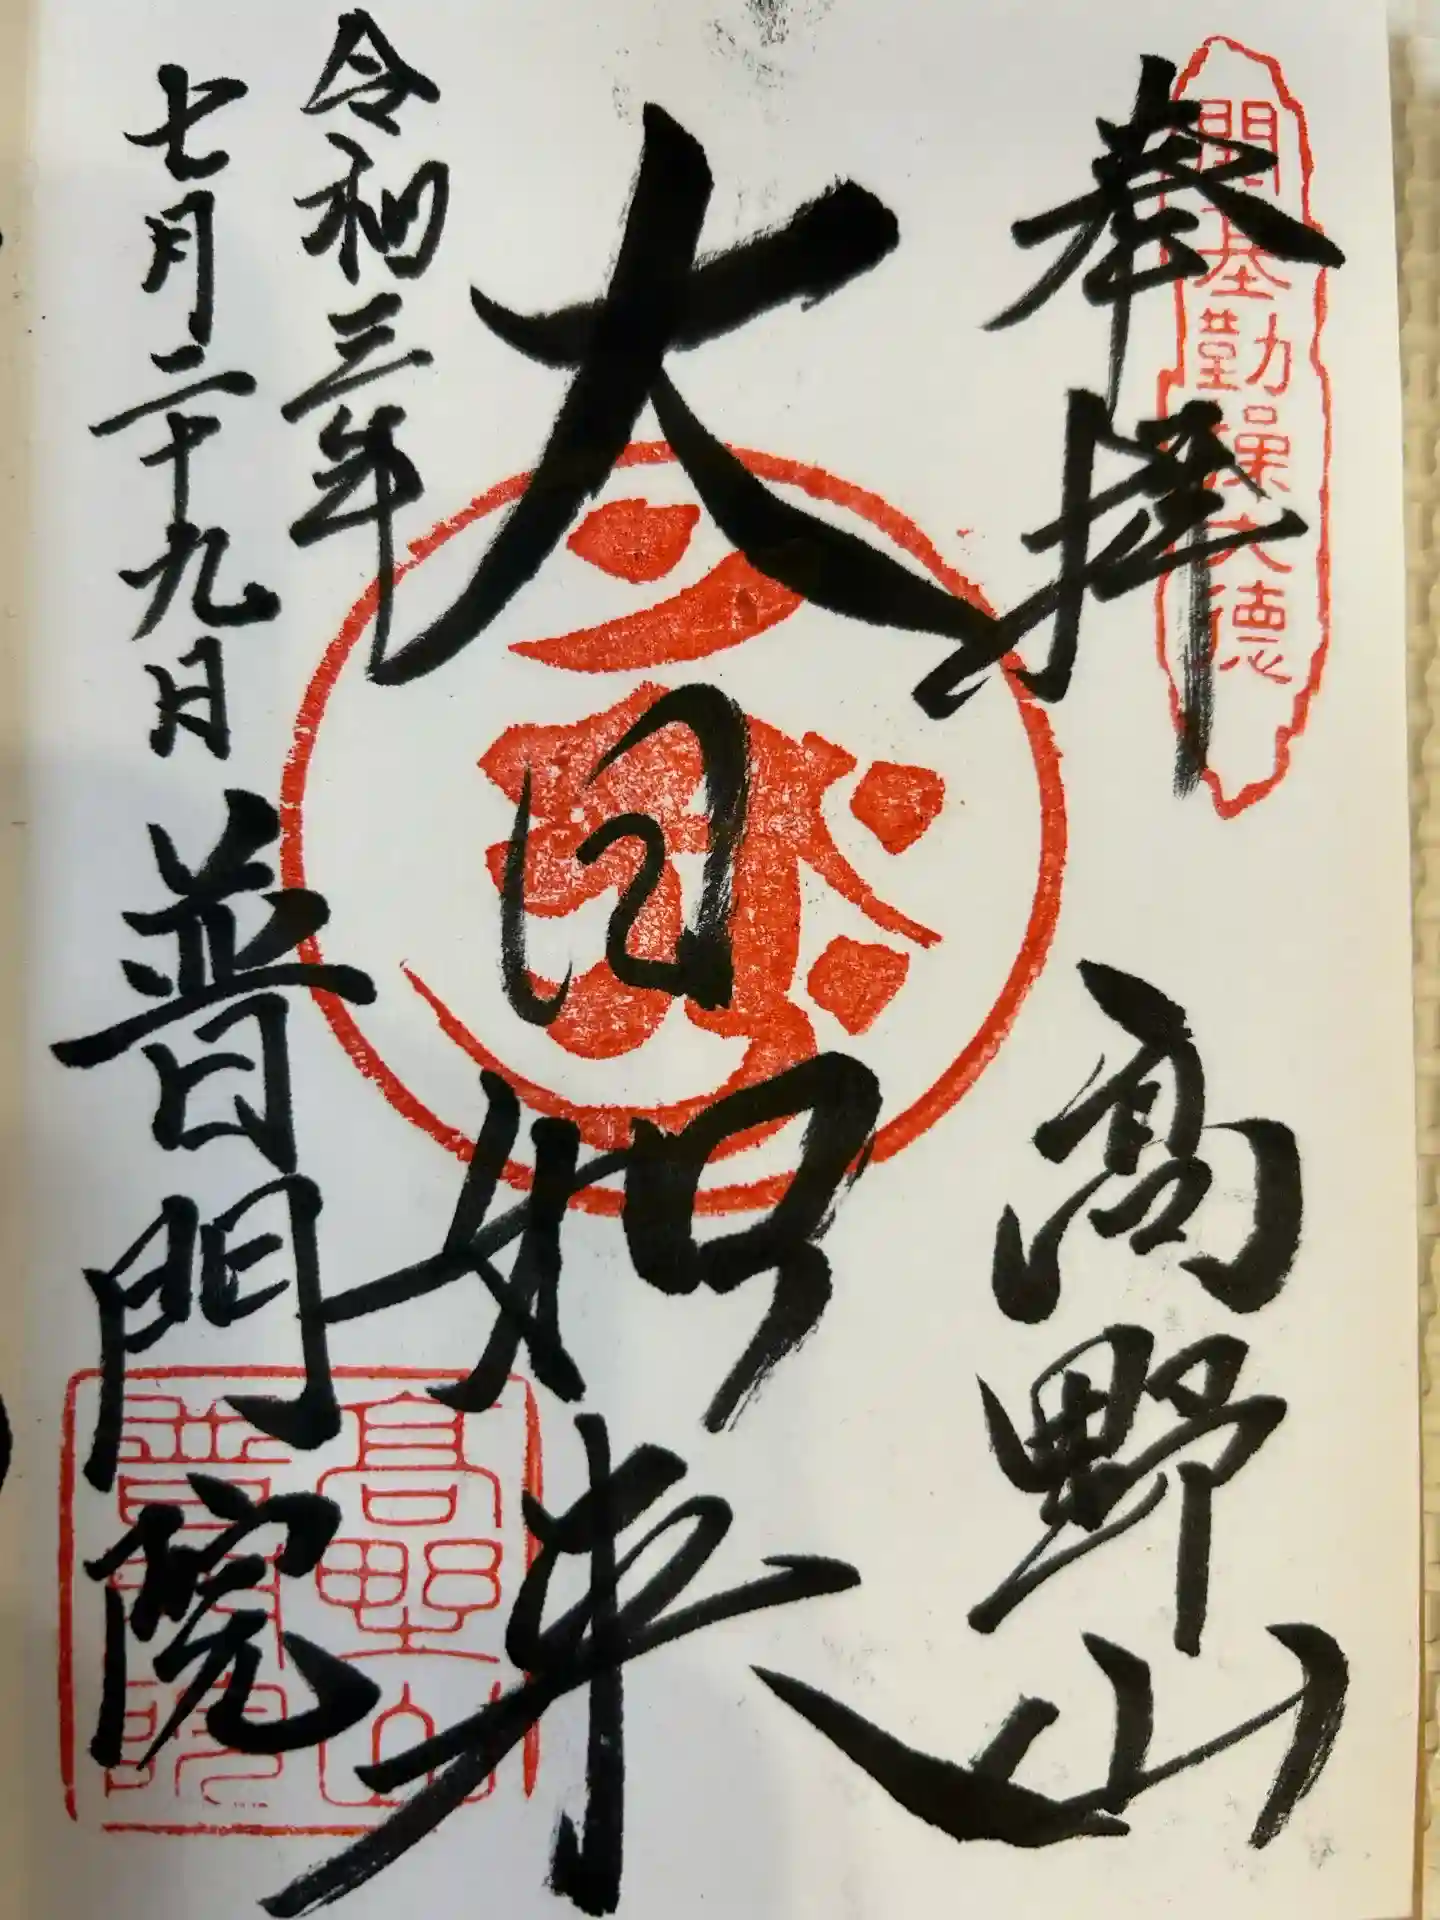 開基勤操大徳
奉拝
高野山
大日如来
令和三年
七月二十九日
普門院
高野山
普門院